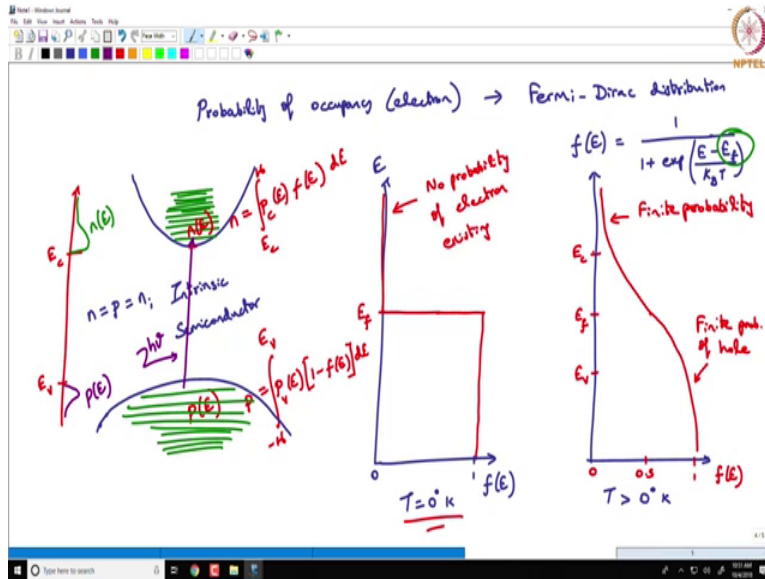 Note1 - Windows Journal
File Edit View Insert Actions Tools Help
Page Width
B I
NPTEL
Probability of occupancy (electron) → Fermi-Dirac distribution
f(E) = 1 / (1 + exp((E - E_f) / K_B T))
n(E)
E_c
E_v
p(E)
n = p = n_i Intrinsic
Semiconductor
hν
n(E)
n = ∫_{E_c}^{∞} ρ_c(E) f(E) dE
p(E)
p = ∫_{-∞}^{E_v} ρ_v(E) [1 - f(E)] dE
E
No probability
of electron
existing
E_f
0
1
f(E)
T = 0° K
Finite probability
E_c
E_f
E_v
Finite prob.
of hole
0
0.5
1
f(E)
T > 0° K
Type here to search
10:51 AM
10/4/2018